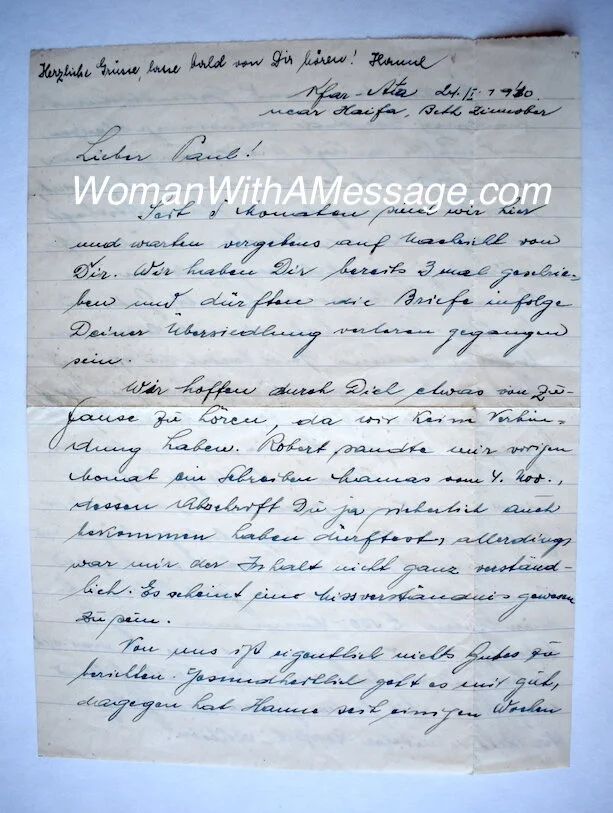 Herzliche Grüsse, lasse bald von Dir hören! Hanne
Kfar-Ata 24./I. 1940
near Haifa, Beth Zinnober
Lieber Paul!
WomanWithAMessage.com
Seit 5 Monaten sind wir hier
und warten vergebens auf Nachricht von
Dir. Wir haben Dir bereits 3 mal geschrie-
ben und dürften die Briefe infolge
Deiner Übersiedlung verloren gegangen
sein.
Wir hoffen durch Dich etwas von Zu-
hause zu hören, da wir keine Verbin-
dung haben. Robert sandte mir vorigen
Monat ein Schreiben Mamas vom 4. Nov.,
dessen Abschrift Du ja sicherlich auch
bekommen haben dürftest, allerdings
war mir der Inhalt nicht ganz verständ-
lich. Es scheint eine Missverständnis gewesen
zu sein.
Von uns ist eigentlich nichts Gutes zu
berichten. Gesundheitlich geht es mir gut,
dagegen hat Hanne seit einigen Wochen